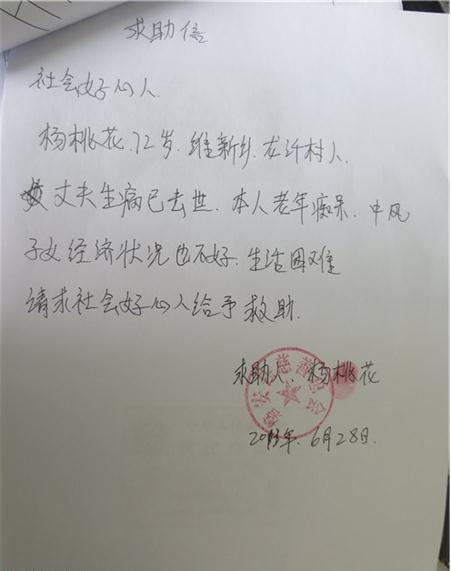 求助信
社会好心人
杨桃花.72岁.维新乡.龙沂村人.
丈夫生病已去世.本人老年痴呆.中风
子女经济状况也不好.生活困难
请求社会好心人给予救助.
求助人 杨桃花
6月28日.